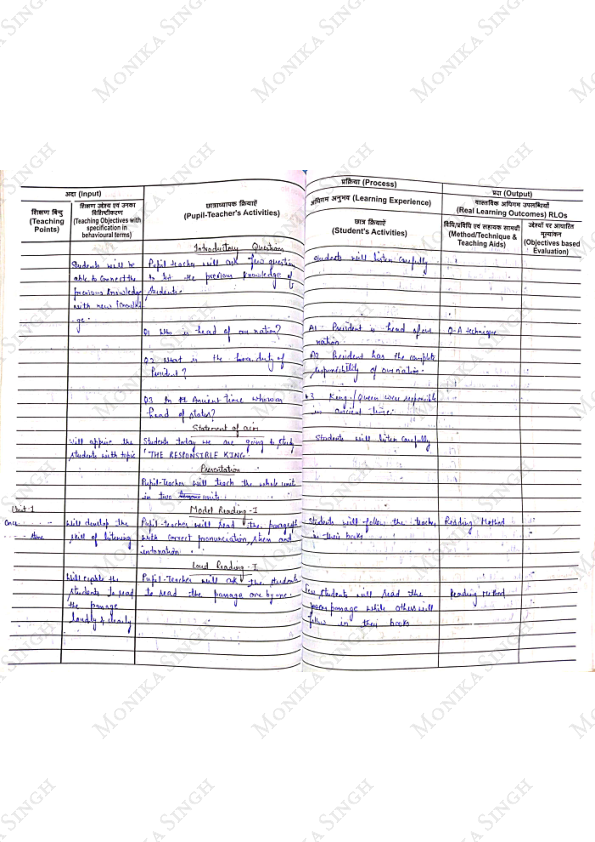 MONIKA SINGH
अदा (Input)
प्रक्रिया (Process)
प्रदा (Output)
शिक्षण बिन्दु
(Teaching
Points)
शिक्षण उद्देश्य एवं उनका
विशिष्टीकरण
(Teaching Objectives with
specification in
behavioural terms)
छात्राध्यापक क्रियाएँ
(Pupil-Teacher's Activities)
अधिगम अनुभव (Learning Experience)
छात्र क्रियाएँ
(Student's Activities)
वास्तविक अधिगम उपलब्धियाँ
(Real Learning Outcomes) RLOs
विधि/प्रविधि एवं सहायक सामग्री
(Method/Technique &
Teaching Aids)
उद्देश्यों पर आधारित
मूल्यांकन
(Objectives based
Evaluation)
Introductory Questions
Students will be
able to connect the
previous knowledge
with new knowled
-ge.
Pupil teacher will ask few question
to test the previous knowledge of
students.
Students will listen carefully
Q1 Who is head of our nation?
A1 President is head of our
nation
Q-A technique
Q2 What is the duty of
President?
A2 President has the complete
responsibility of our nation.
Q3 In the Ancient time who was
head of states?
King/Queen were responsible
in ancient time.
Statement of aim
will apprise the
students with topic
Students today we are going to study
'THE RESPONSIBLE KING
Students will listen carefully
Presentation
Pupil-Teacher will teach the whole unit
in two units.
Model Reading-I
Unit 1
Once
time
Will develop the
skill of listening
Pupil-teacher will read the paragraph
with correct pronunciation, stress and
intonation.
Students will follow the teacher
in their books
Reading Method
Loud Reading-I
Will enable the
students to read
the passage
loudly & clearly
Pupil-Teacher will ask the students
to read the passage one by one.
Few students will read the
passage while others will
follow in their books
Reading Method